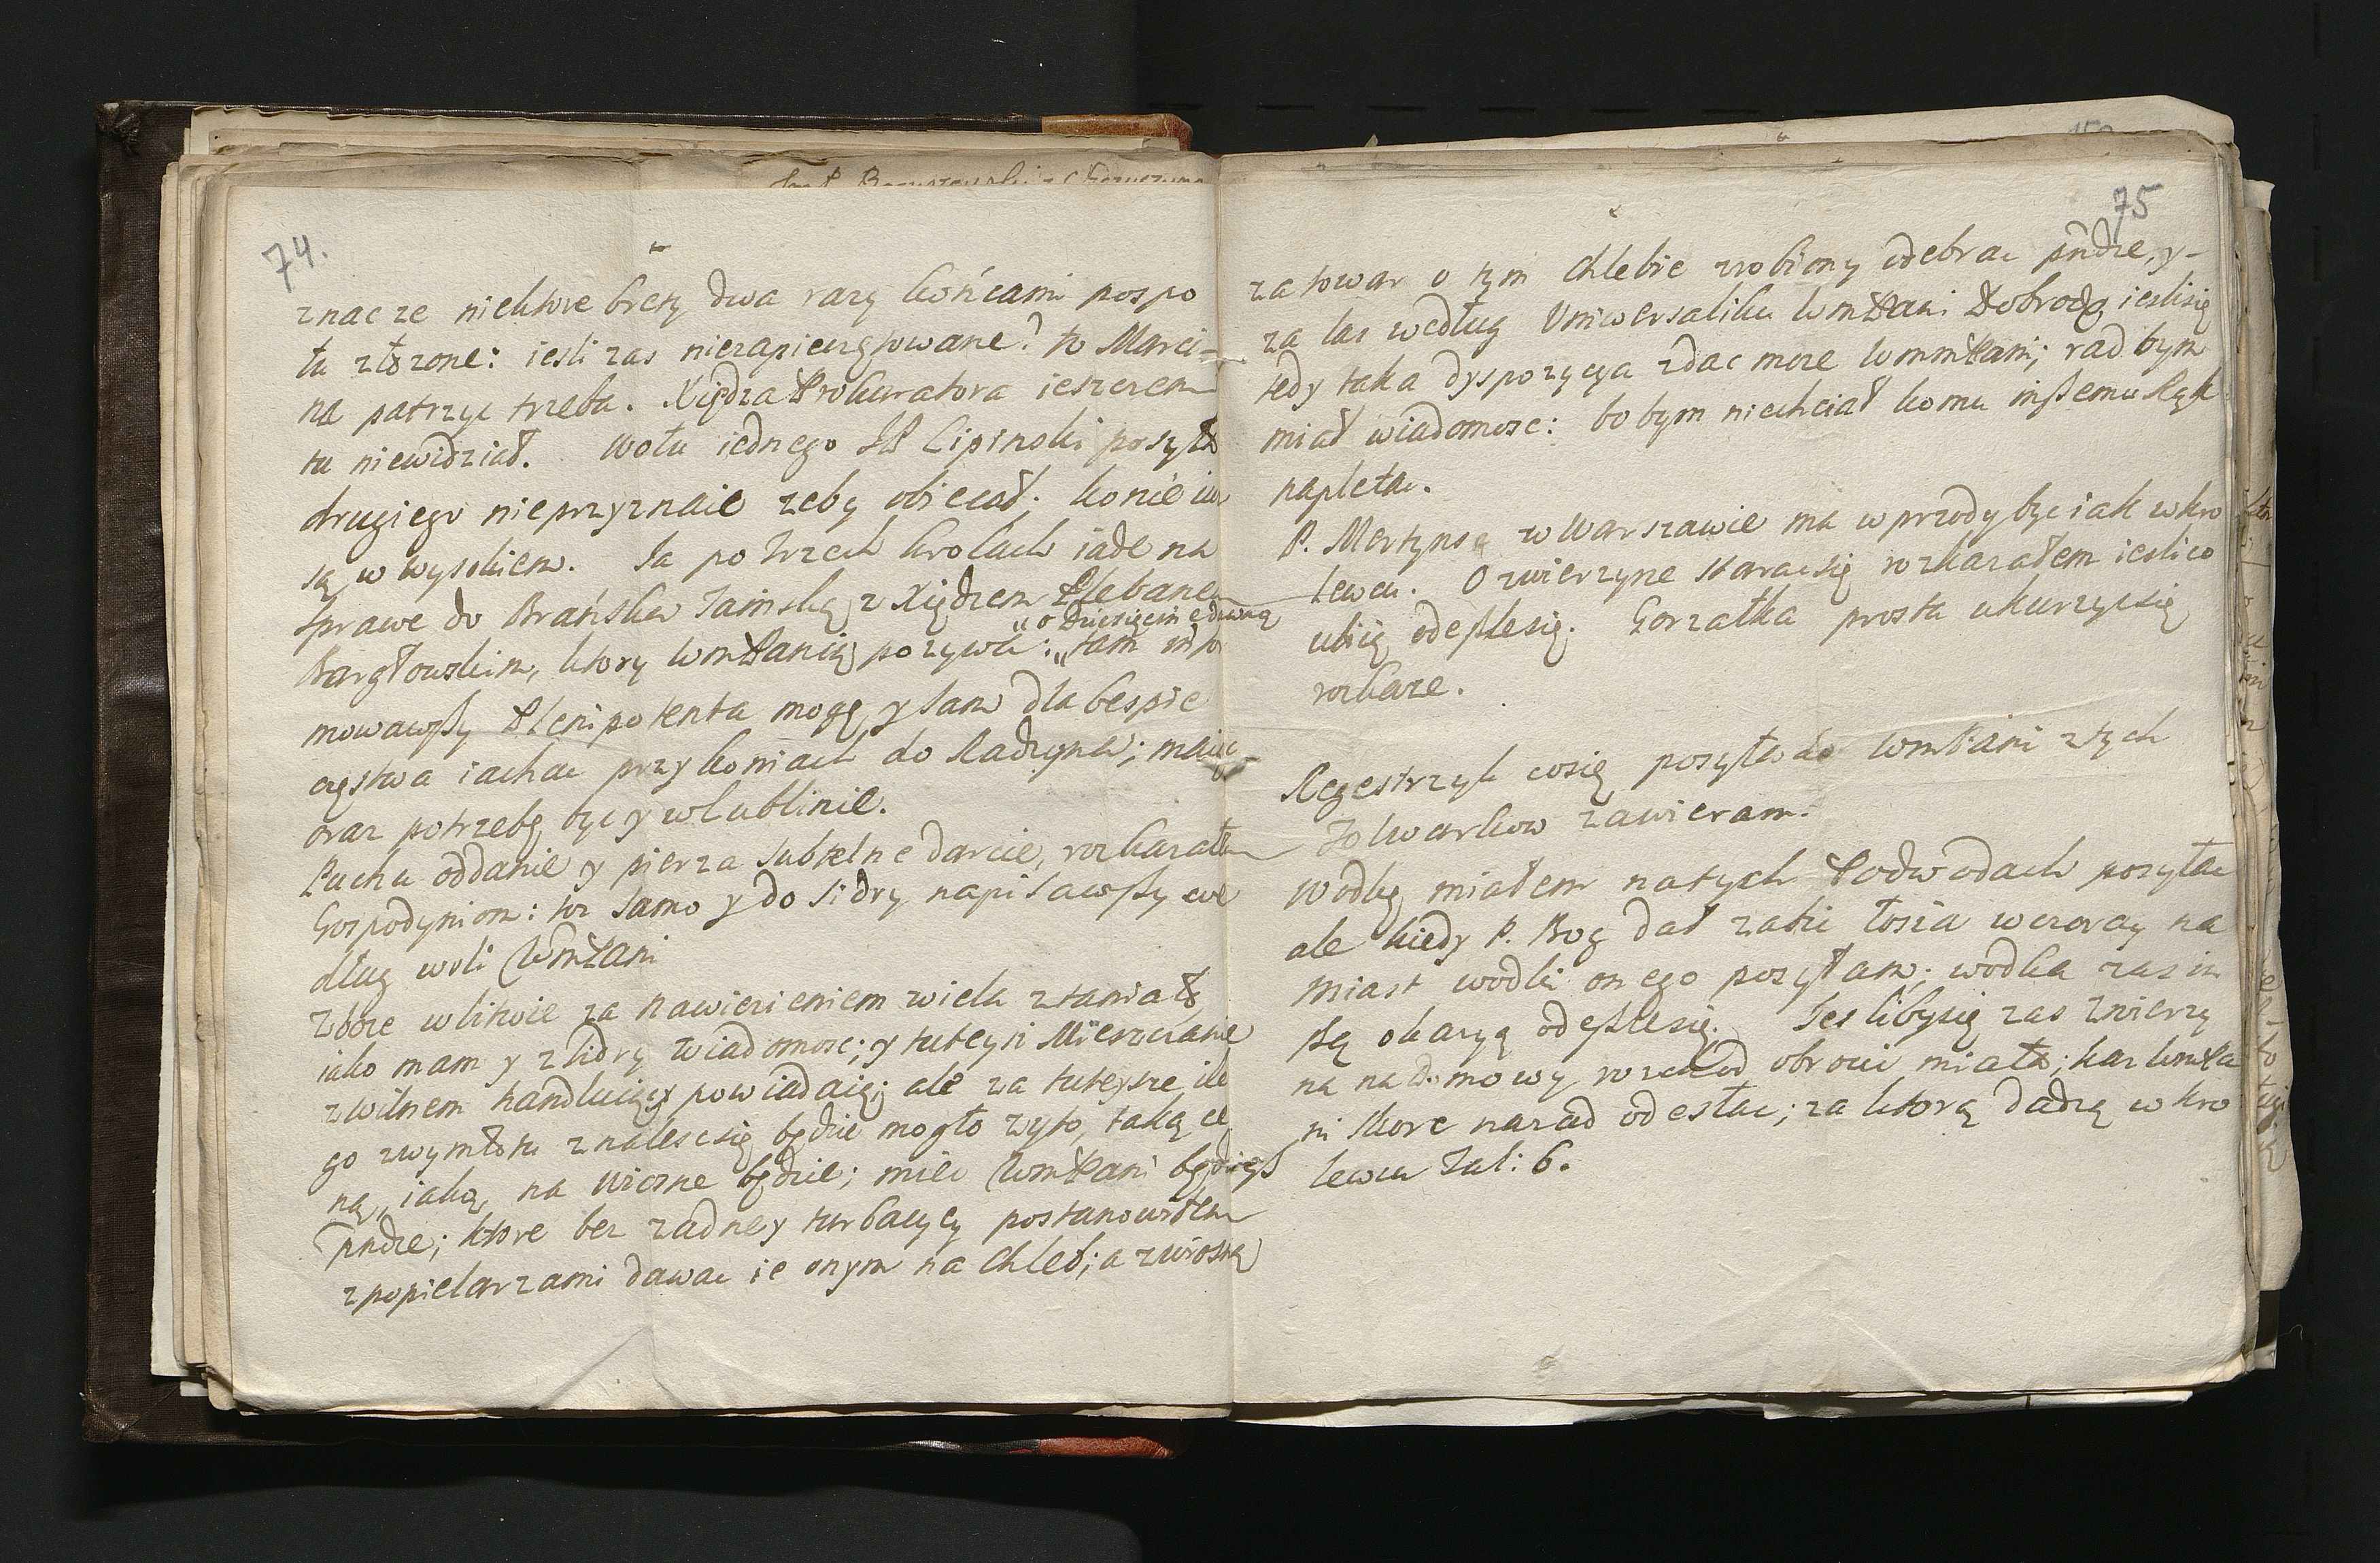 74.
znac ze niektore brety dwa razy końcami pospo
łu złozone: iesli zas niezapieczętowane? to Marci-
na patrzyc trzeba. Xiędza Prokuratora ieszczem
tu niewidział. Wołu iednego JP Lipinski posyła
drugiego nieprzyznaie zeby obiecał. konie
są w wysokiem. Ja po Trzech krolach iade na
sprawe do Brańska Jaminską z Xiędzem Plebanem
"o Dziesięcinę dawną
Bargłowskim, ktory WmPanią pozywa: "tam infor
mowawszy Plenipotenta mogę y sam dla bespie
częstwa iachac przy koniach do Radzynia; maiąc
oraz potrzebę byc y w Lublinie.
Puchu oddanie y pierza subtelne darcie, rozkazałem
Gospodyniom: toz samo y do Sidry napisawszy we
dług woli WmPani
Zboze w litwie za nawiezieniem wielu ztaniało,
iako mam y z Sidry wiadomosc; y tuteysi Miesczanie
z wilnem handluiący powiadaią; ale za tuteysze ile
go z wymłotu znalescsię będzie mogło zyto, taką ce
ną, iaką na wiosne będzie; miec WmPani będziesz
pndze; ktore bez zadney turbacyey postanowiłem
z popielarzami dawac ie onym na chleb; a z wiosną
75
za towar o tym chlebie zrobiony odebrac pndze, y-
za las według Uniwersaliku WmPani Dobrodzi, ieslisię
tedy taka dyspozycya zdac moze WmmPani; rad bym
miał wiadomosc: bo bym niechciał komu inszemu Ręk
napletac.
P. Mertynse w Warszawie ma wprzody byc iak w kro
lewcu. O zwierzyne staracsię rozkazałem iesli co
ubią odeszlesię. Gorzałka prosta ukurzycsię
rozkaze.
Regestrzyk cosię posyła do WmPani z tych
Folwarkow zawieram.
Wodkę miałem natych Podwodach posyłac
ale kiedy P. Bog dał zabic łosia wczoray na
miast wodki onego posyłam; wodka zas in
szą okazyą odeszlesię. Jeslibysię zas zwierzy
na na domowy rozchod obroci miała; kaz WmPa
ni skore nazad odesłac; za ktorą dadzą w kro
lewcu Tal: 6.